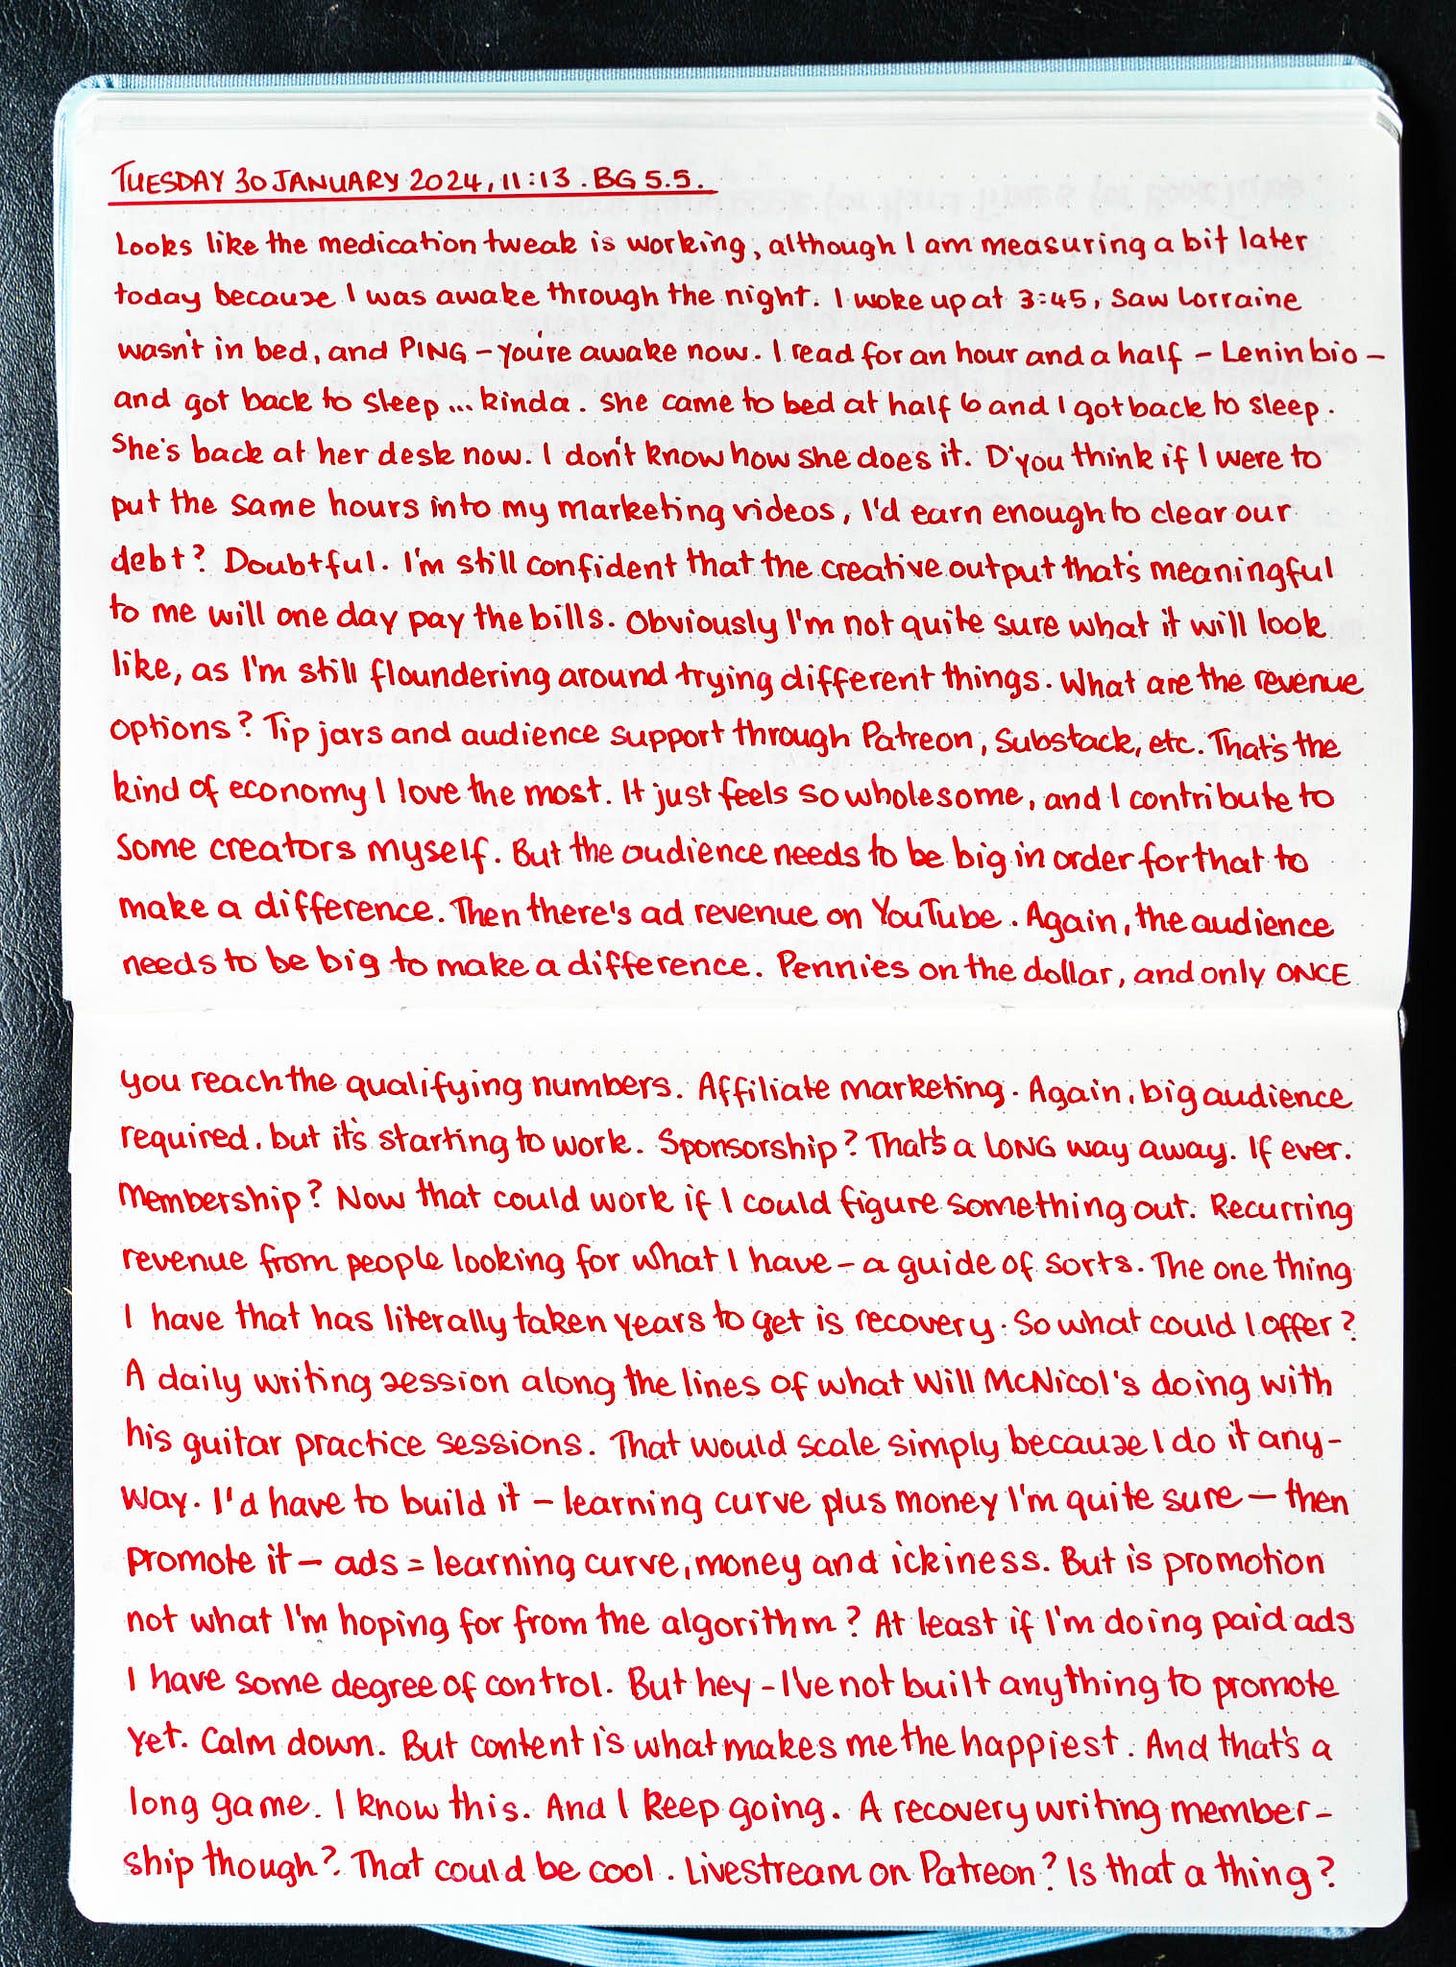 TUESDAY 30 JANUARY 2024, 11:13. BG 5.5.
Looks like the medication tweak is working, although I am measuring a bit later
today because I was awake through the night. I woke up at 3:45, saw Lorraine
wasn't in bed, and PING – you're awake now. I read for an hour and a half – Lenin bio –
and got back to sleep... kinda. She came to bed at half 6 and I got back to sleep.
She's back at her desk now. I don't know how she does it. D'you think if I were to
put the same hours into my marketing videos, I'd earn enough to clear our
debt? Doubtful. I'm still confident that the creative output that's meaningful
to me will one day pay the bills. Obviously I'm not quite sure what it will look
like, as I'm still floundering around trying different things. What are the revenue
options? Tip jars and audience support through Patreon, Substack, etc. That's the
kind of economy I love the most. It just feels so wholesome, and I contribute to
some creators myself. But the audience needs to be big in order for that to
make a difference. Then there's ad revenue on YouTube. Again, the audience
needs to be big to make a difference. Pennies on the dollar, and only ONCE
you reach the qualifying numbers. Affiliate marketing. Again, big audience
required, but it's starting to work. Sponsorship? That's a LONG way away. If ever.
Membership? Now that could work if I could figure something out. Recurring
revenue from people looking for what I have – a guide of sorts. The one thing
I have that has literally taken years to get is recovery. So what could I offer?
A daily writing session along the lines of what Will McNicol's doing with
his guitar practice sessions. That would scale simply because I do it any-
way. I'd have to build it – learning curve plus money I'm quite sure – then
promote it – ads = learning curve, money and ickiness. But is promotion
not what I'm hoping for from the algorithm? At least if I'm doing paid ads
I have some degree of control. But hey – I've not built anything to promote
yet. Calm down. But content is what makes me the happiest. And that's a
long game. I know this. And I keep going. A recovery writing member-
ship though? That could be cool. Livestream on Patreon? Is that a thing?